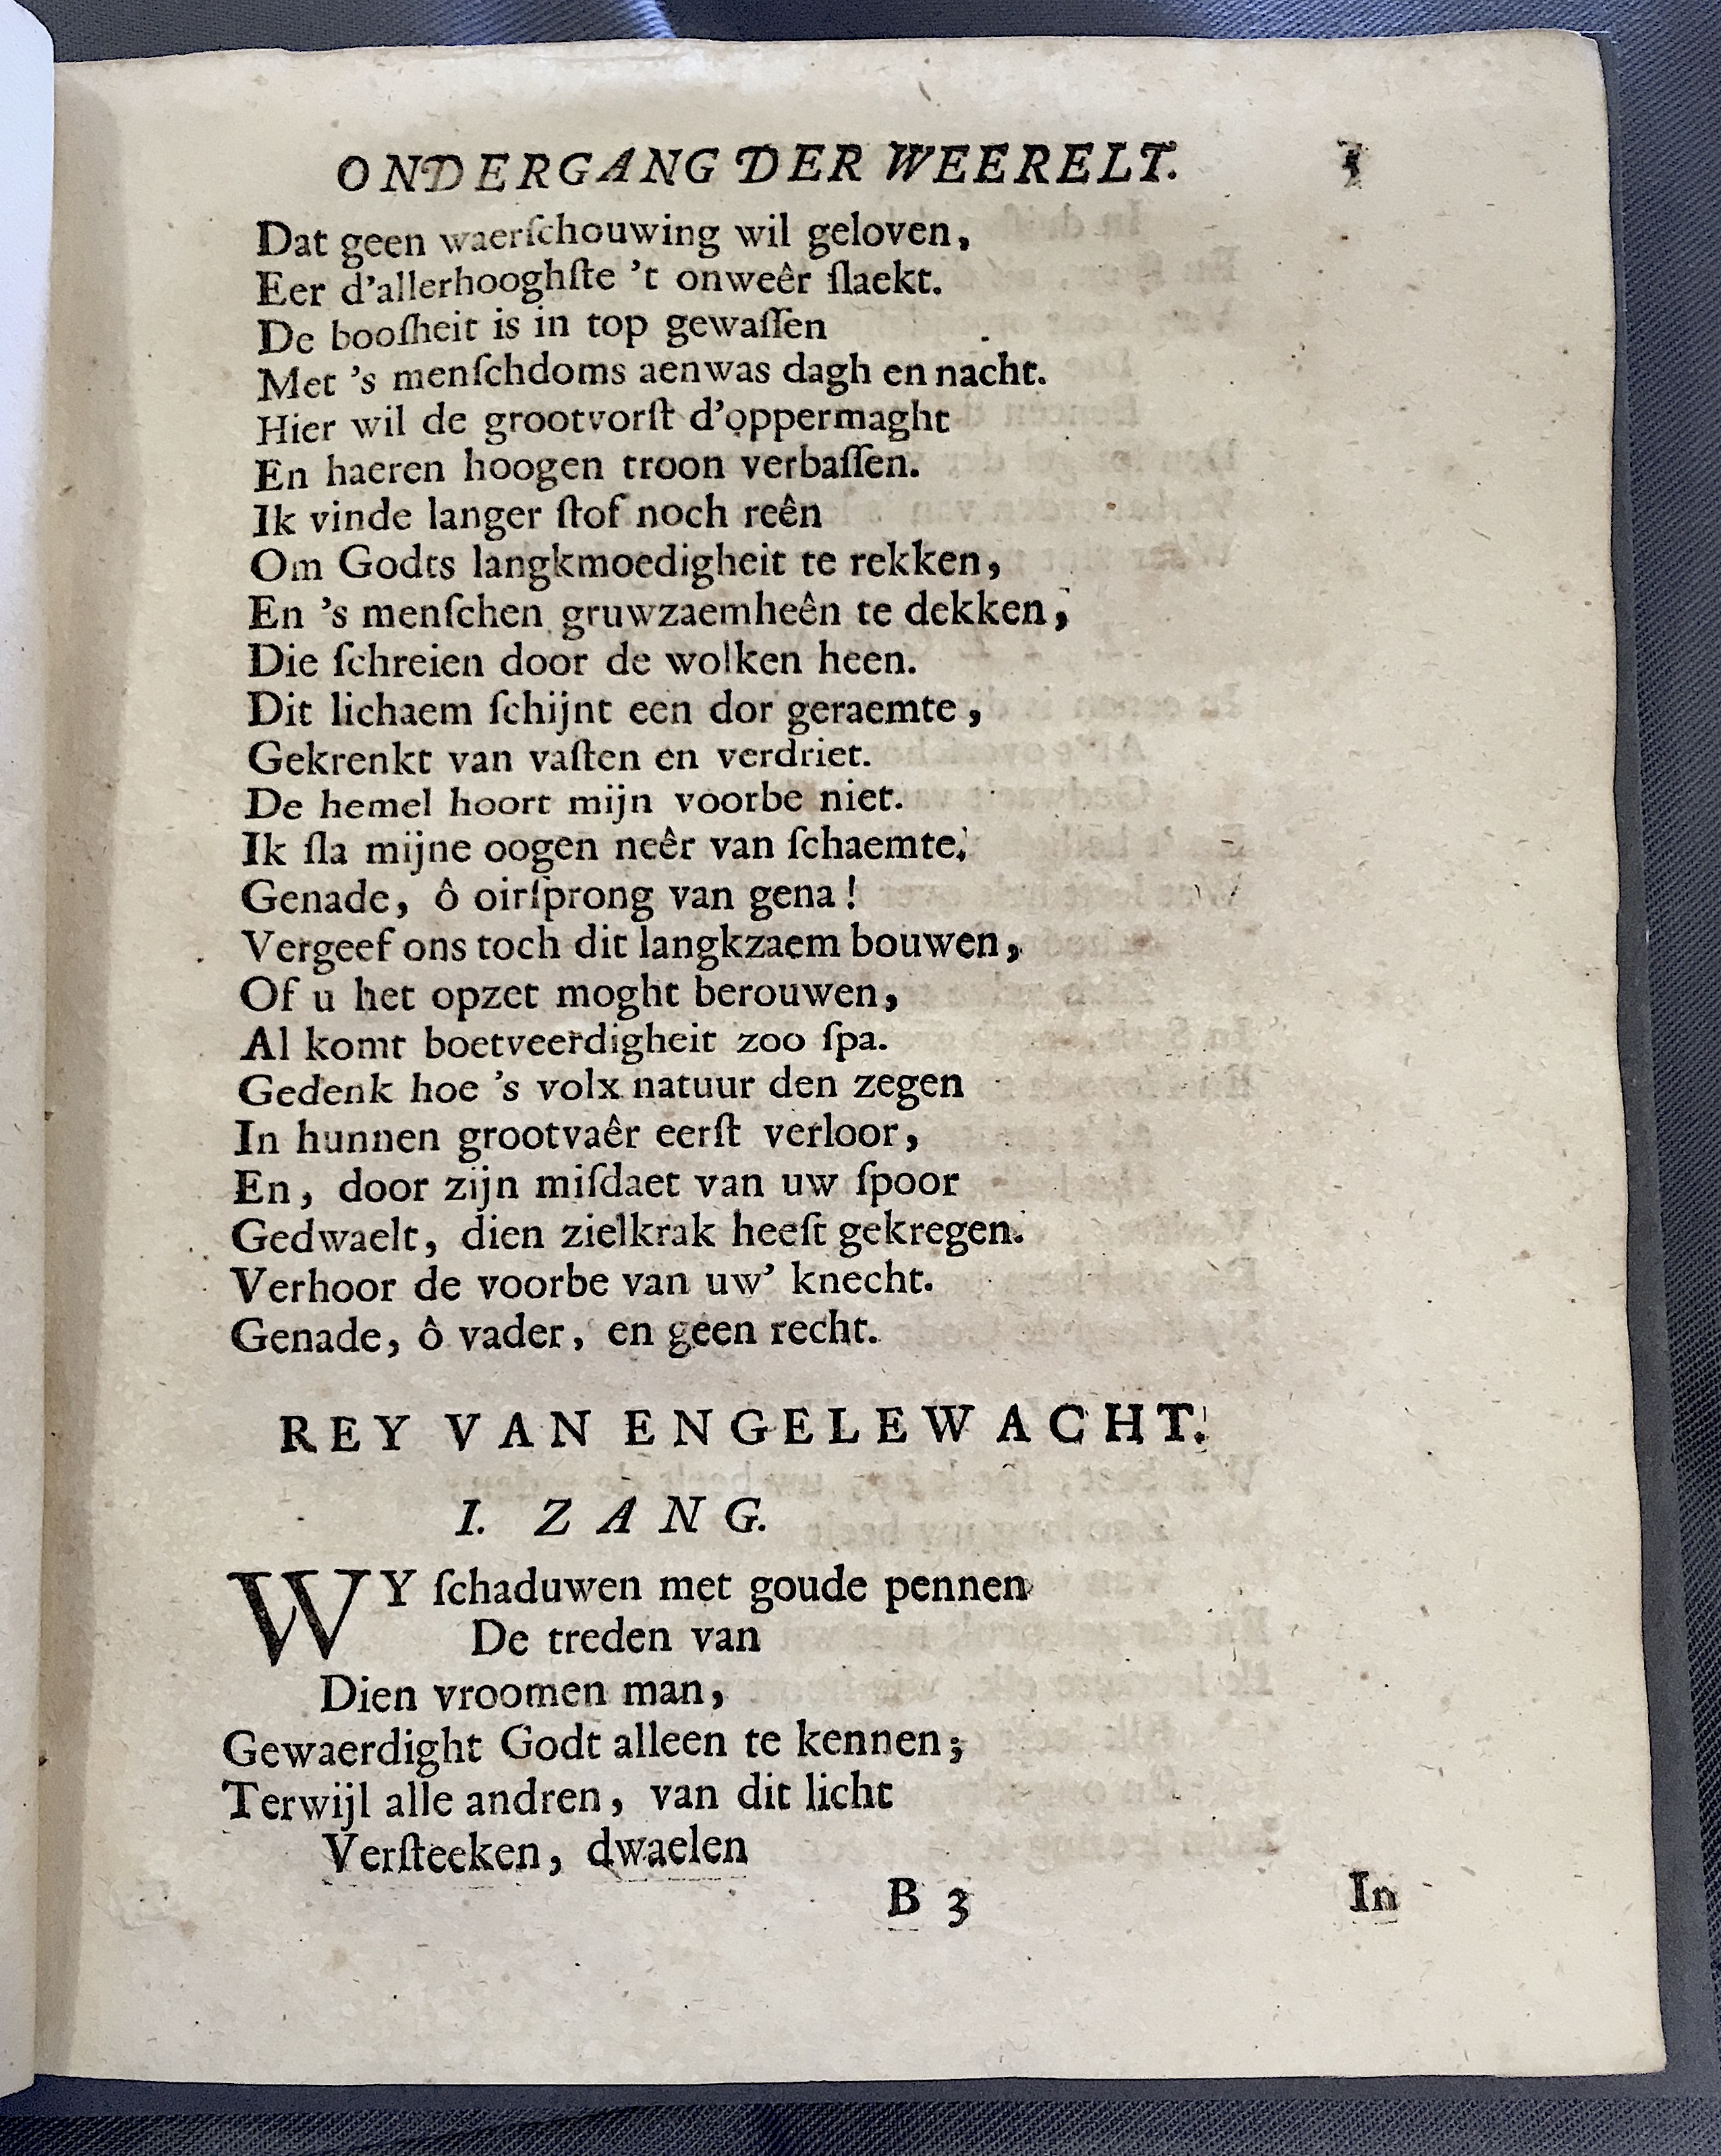 ONDERGANG DER WEERELT.
Dat geen waerſchouwing wil geloven,
Eer d'allerhooghſte 't onweêr ſlaekt.
De boosheit is in top gewaſſen
Met 's menſchdoms aenwas dagh en nacht.
Hier wil de grootvorſt d'oppermaght
En haeren hoogen troon verbaſſen.
Ik vinde langer ſtof noch reên
Om Godts langkmoedigheit te rekken,
En 's menſchen gruwzaemheên te dekken,
Die ſchreien door de wolken heen.
Dit lichaem ſchijnt een dor geraemte,
Gekrenkt van vaſten en verdriet.
De hemel hoort mijn voorbe niet.
Ik ſla mijne oogen neêr van ſchaemte.
Genade, ô oirſprong van gena!
Vergeef ons toch dit langkzaem bouwen,
Of u het opzet moght berouwen,
Al komt boetveerdigheit zoo ſpa.
Gedenk hoe 's volx natuur den zegen
In hunnen grootvaêr eerſt verloor,
En, door zijn miſdaet van uw ſpoor
Gedwaelt, dien zielkrak heeft gekregen.
Verhoor de voorbe van uw' knecht.
Genade, ô vader, en geen recht.
REY VAN ENGELEWACHT.
I. ZANG.
WY ſchaduwen met goude pennen
De treden van
Dien vroomen man,
Gewaerdight Godt alleen te kennen;
Terwijl alle andren, van dit licht
Verſteeken, dwaelen
B 3 In